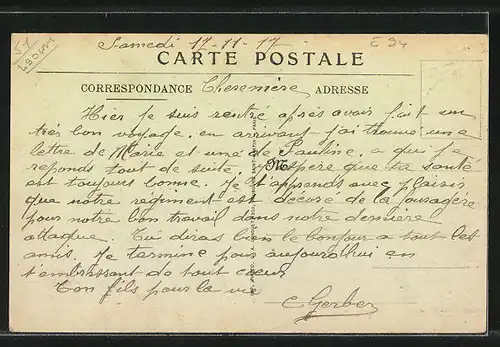 Samedi 17-11-17
E 94
CARTE POSTALE
CORRESPONDANCE Chere mère ADRESSE
Hier je suis rentré après avoir fait un
très bon voyage, en arrivant j'ai trouvé une
lettre de Marie et une de Pauline, a qui je
reponds tout de suite, j'espere que ta santé
est toujours bonne. Je t'apprends avec plaisir
que notre regiment est décoré de la fouragère
pour notre bon travail dans notre derniere
attaque. Tu diras bien le bonjour a tout les
amis. Je termine pour aujourd'hui en
t'embrassant de tout cœur
Ton fils pour la vie
C Gerber